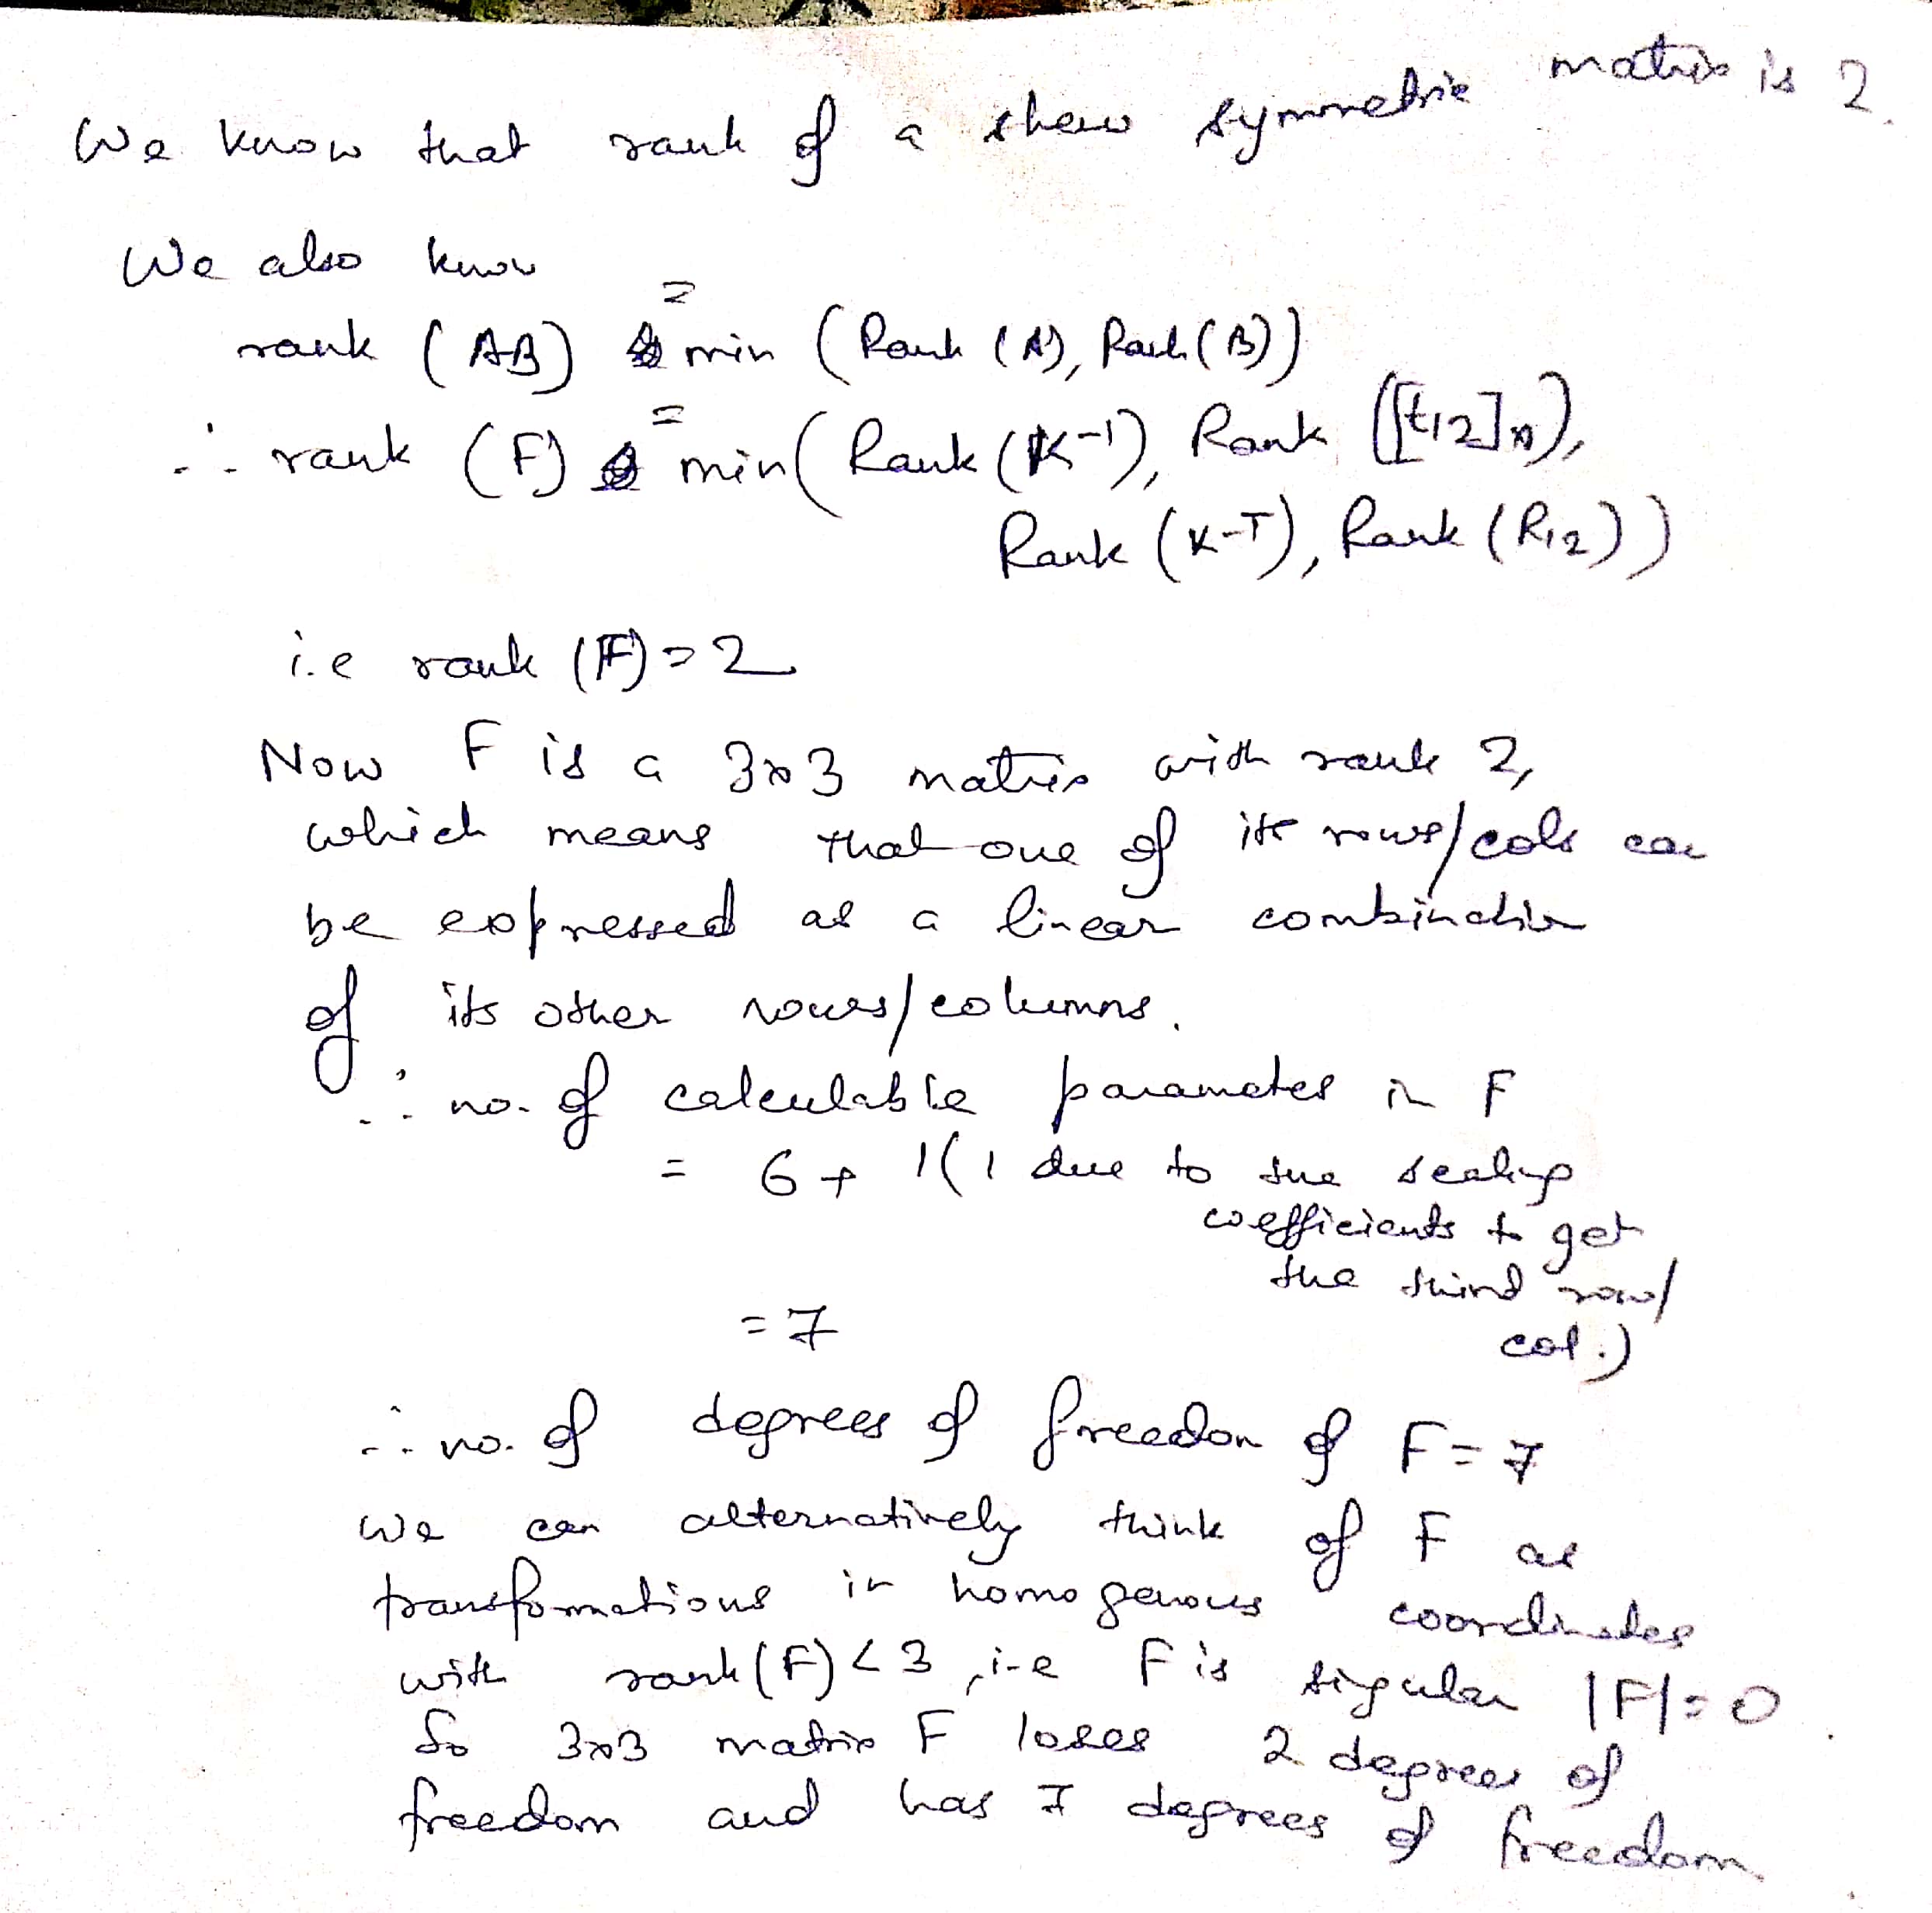 We know that rank of a skew symmetric matrix is 2.
We also know
rank (AB) = min (Rank (A), Rank (B))
∴ rank (F) = min (Rank (K^-1), Rank ([t12]x),
Rank (K-T), Rank (R12))
i.e rank (F) = 2
Now F is a 3x3 matrix with rank 2,
which means that one of its rows/cols can
be expressed as a linear combination
of its other rows/columns.
∴ no. of calculable parameters in F
= 6 + 1 (1 due to the scaling
coefficients to get
the third row/
col.)
= 7
∴ no. of degrees of freedom of F = 7
We can alternatively think of F as
transformations in homogenous coordinates
with rank (F) < 3, i.e F is singular |F| = 0.
So 3x3 matrix F loses 2 degrees of
freedom and has 7 degrees of freedom.